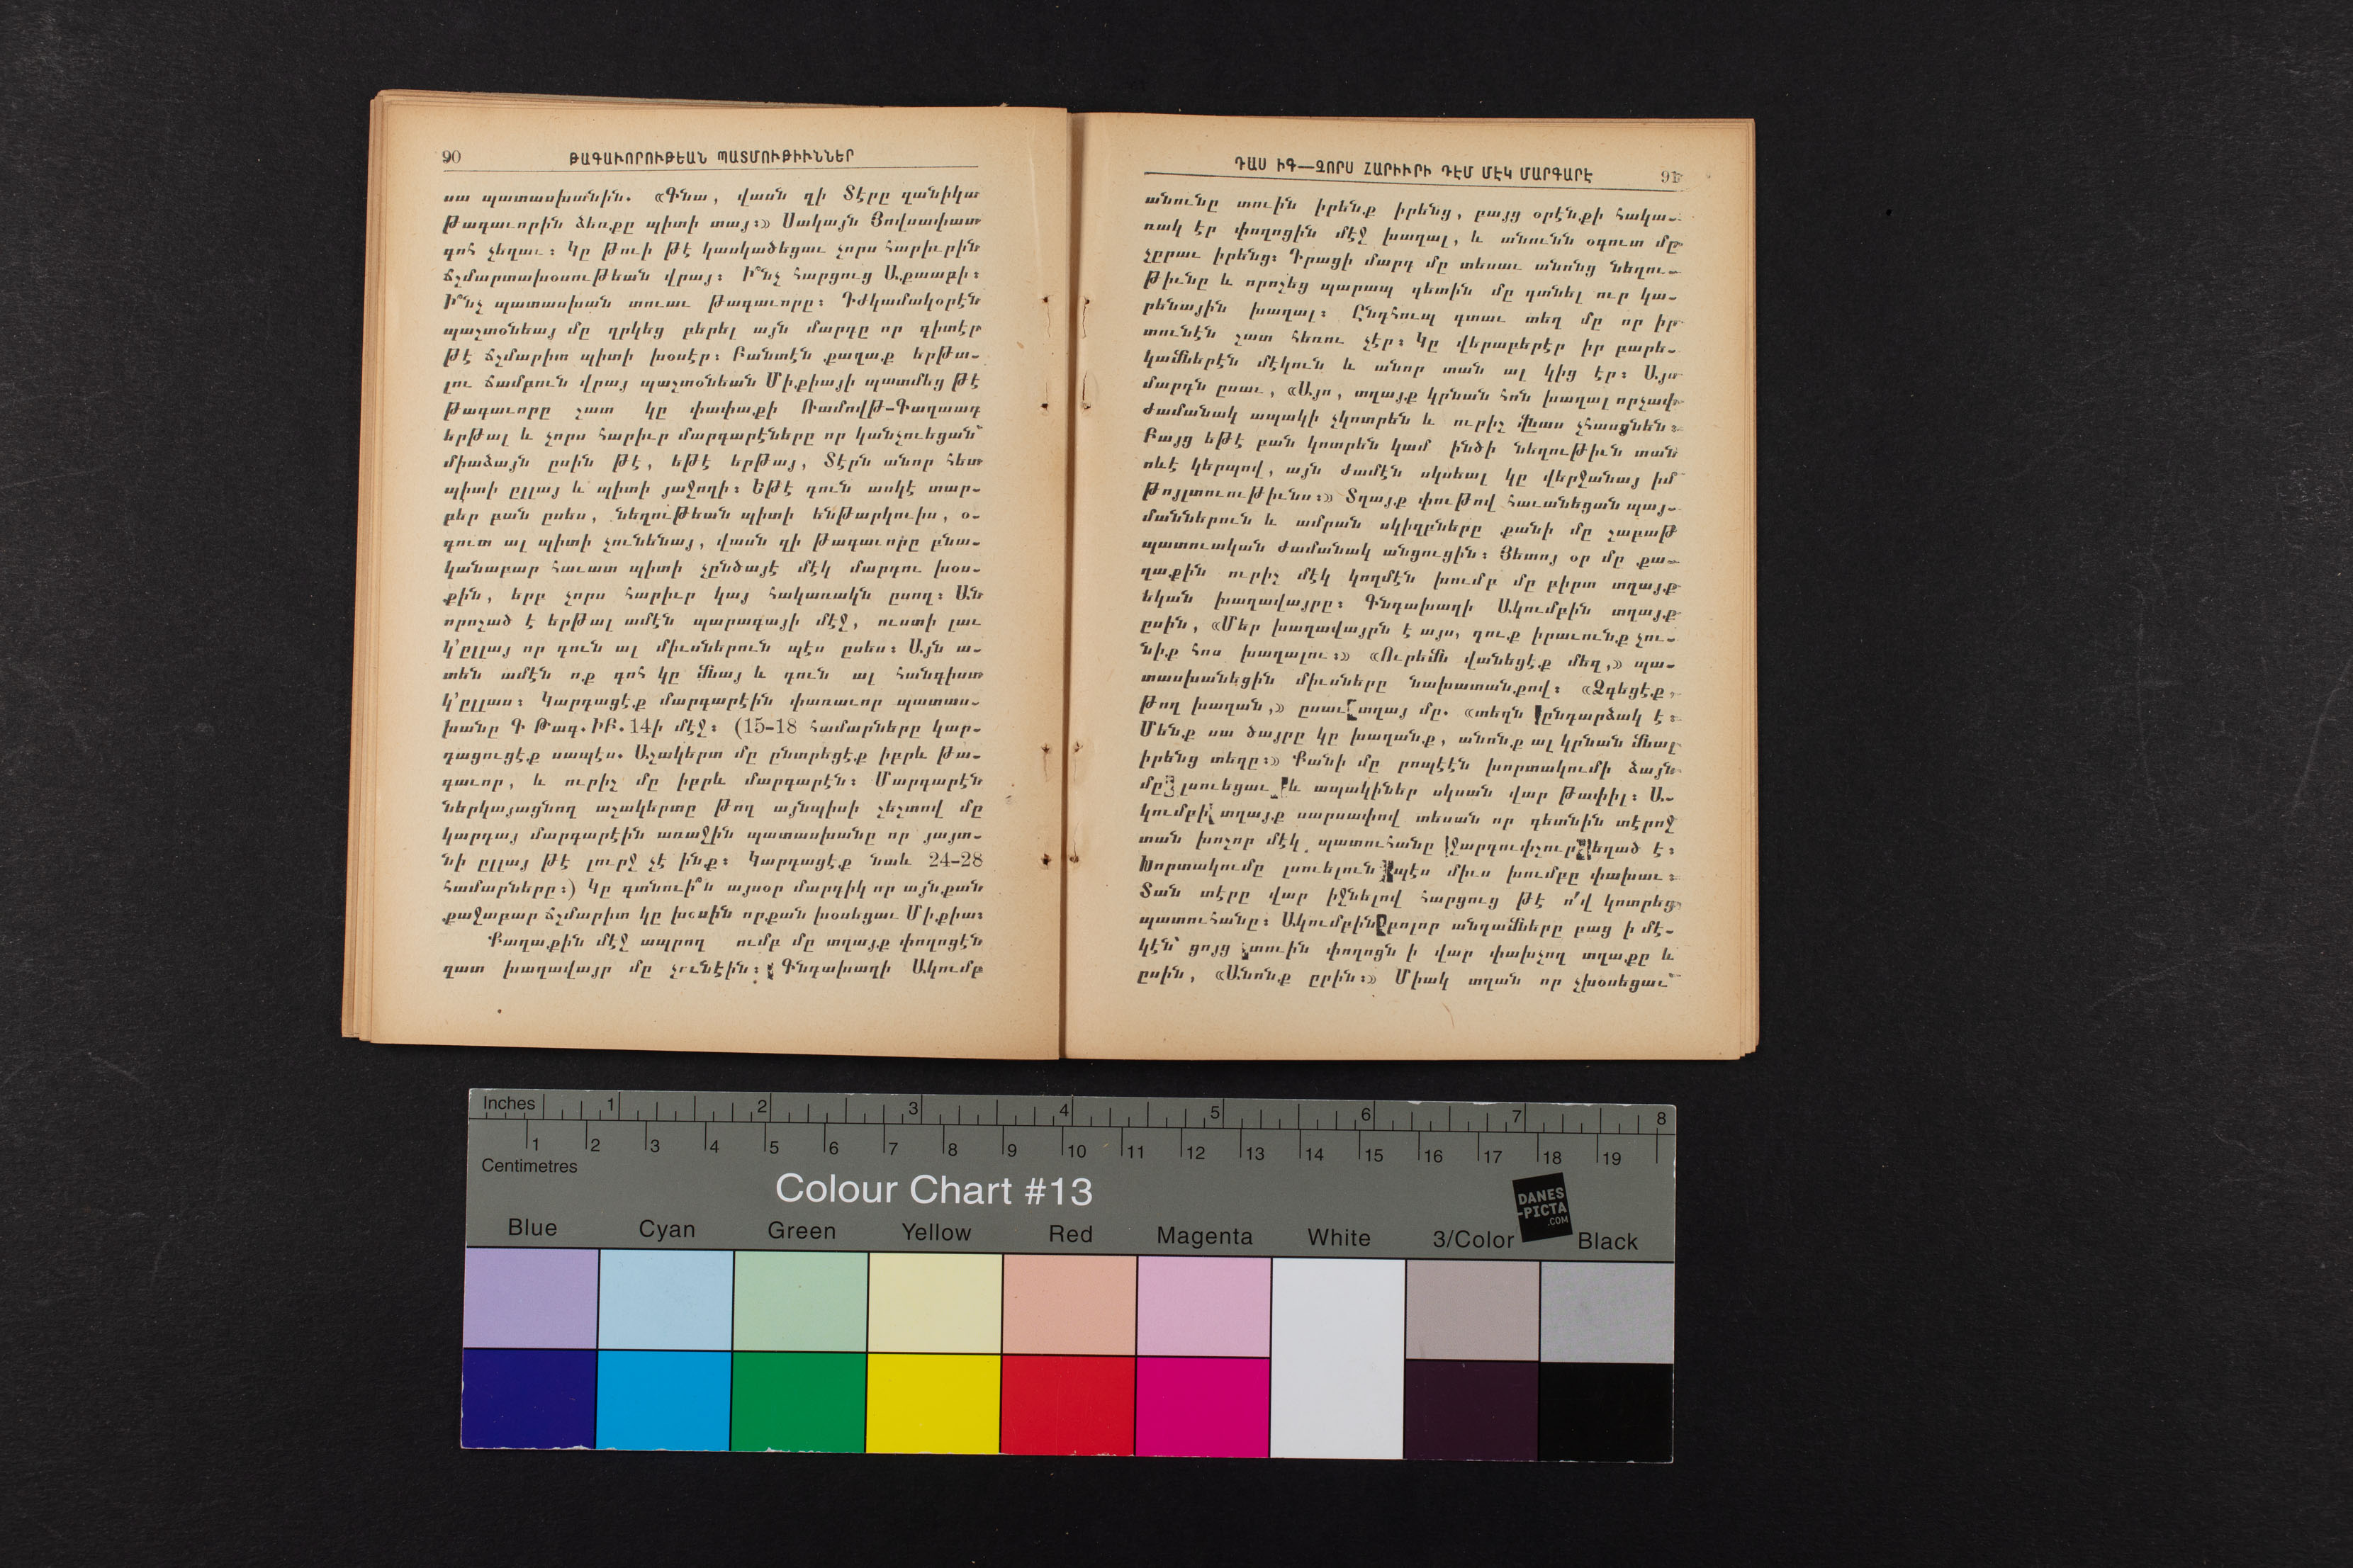 90 ԹԱԳԱՒՈՐՈՒԹԵԱՆ ՊԱՏՄՈՒԹԻՒՆՆԵՐ
սա պատասխանին. «Գնա, վասն զի Տէրը զանիկա
թագաւորին ձեռքը պիտի տայ։» Սակայն Յովսափատ
գոհ չեղաւ։ Կը թուի թէ կասկածեցաւ չորս հարիւրին
ճշմարտախօսութեան վրայ։ Ի՞նչ հարցուց Աքաաբի։
Ի՞նչ պատասխան տուաւ թագաւորը։ Դժկամակօրէն
պաշտօնեայ մը ղրկեց բերել այն մարդը որ գիտէր
թէ ճշմարիտ պիտի խօսէր։ Բանտէն քաղաք երթա-
լու ճամբուն վրայ պաշտօնեան Միքիայի պատմեց թէ
թագաւորը շատ կը փափաքի Ռամովթ-Գաղաադ
երթալ և չորս հարիւր մարգարէները որ կանչուեցան՝
միաձայն ըսին թէ, եթէ երթայ, Տէրն անոր հետ
պիտի ըլլայ և պիտի յաջողի։ Եթէ դուն ասկէ տար-
բեր բան ըսես, նեղութեան պիտի ենթարկուիս, օ-
գուտ ալ պիտի չունենայ, վասն զի թագաւորը բնա-
կանաբար հաւատ պիտի չընծայէ մէկ մարդու խօս-
քին, երբ չորս հարիւր կայ հակառակն ըսող։ Ան
որոշած է երթալ ամէն պարագայի մէջ, ուստի լաւ
կ՚ըլլայ որ դուն ալ միւսներուն պէս ըսես։ Այն ա-
տեն ամէն ոք գոհ կը մնայ և դուն ալ հանգիստ
կ՚ըլլաս։ Կարդացէք մարգարէին փառաւոր պատաս-
խանը Գ Թագ. ԻԲ. 14ի մէջ։ (15-18 համարները կար-
դացուցէք սապէս. Աշակերտ մը ընտրեցէք իբրև թա-
գաւոր, և ուրիշ մը իբրև մարգարէն։ Մարգարէն
ներկայացնող աշակերտը թող այնպիսի շեշտով մը
կարդայ մարգարէին առաջին պատասխանը որ յայտ-
նի ըլլայ թէ լուրջ չէ ինք։ Կարդացէք նաև 24-28
համարները։) Կը գտնուի՞ն այսօր մարդիկ որ այնքան
քաջաբար ճշմարիտ կը խօսին որքան խօսեցաւ Միքիա։
Քաղաքին մէջ ապրող ումբ մը տղայք փողոցէն
զատ խաղավայր մը չունէին։ Գնդախաղի Ակումբ
ԴԱՍ ԻԳ—ՉՈՐՍ ՀԱՐԻՒՐԻ ԴԷՄ ՄԷԿ ՄԱՐԳԱՐԷ 91
անունը տուին իրենք իրենց, բայց օրէնքի հակա-
ռակ էր փողոցին մէջ խաղալ, և անունն օգուտ մը
չըրաւ իրենց։ Դրացի մարդ մը տեսաւ անոնց նեղու-
թիւնը և որոշեց պարապ գետին մը գտնել ուր կա-
րենային խաղալ։ Ընդհուպ գտաւ տեղ մը որ իր
տունէն շատ հեռու չէր։ Կը վերաբերէր իր բարե-
կամներէն մէկուն և անոր տան ալ կից էր։ Այս
մարդն ըսաւ, «Այո, տղայք կրնան հոն խաղալ որչափ
ժամանակ ապակի չկոտրեն և ուրիշ վնաս չհասցնեն։
Բայց եթէ բան կոտրեն կամ ինծի նեղութիւն տան
ոևէ կերպով, այն ժամէն սկսեալ կը վերջանայ իմ
թոյլտուութիւնս։» Տղայք փութով հաւանեցան պայ-
մաններուն և ամրան սկիզբները քանի մը շաբաթ
պատուական ժամանակ անցուցին։ Յետոյ օր մը քա-
ղաքին ուրիշ մէկ կողմէն խումբ մը բիրտ տղայք
եկան խաղավայրը։ Գնդախաղի Ակումբին տղայք
ըսին, «Մեր խաղավայրն է այս, դուք իրաւունք չու-
նիք հոս խաղալու։» «Ուրեմն վանեցէք մեզ,» պա-
տասխանեցին միւսները նախատանքով։ «Ձգեցէք,
թող խաղան,» ըսաւ տղայ մը. «տեղն ընդարձակ է։
Մենք սա ծայրը կը խաղանք, անոնք ալ կրնան մնալ
իրենց տեղը։» Քանի մը րոպէէն խորտակումի ձայն
մը լսուեցաւ և ապակիներ սկսան վար թափիլ։ Ա-
կումբի տղայք սարսափով տեսան որ գետնին տէրոջ
տան խոշոր մէկ պատուհանը ջարդուփշուր եղած է։
Խորտակումը լսուելուն պէս միւս խումբը փախաւ։
Տան տէրը վար իջնելով հարցուց թէ ո՛վ կոտրեց
պատուհանը։ Ակումբին բոլոր անդամները բաց ի մէ-
կէն՝ ցոյց տուին փողոցն ի վար փախչող տղաքը և
ըսին, «Անոնք ըրին։» Միակ տղան որ չխօսեցաւ՝
Inches 1 2 3 4 5 6 7 8
1 2 3 4 5 6 7 8 9 10 11 12 13 14 15 16 17 18 19
Centimetres
Colour Chart #13
DANES
-PICTA
.COM
Blue Cyan Green Yellow Red Magenta White 3/Color Black